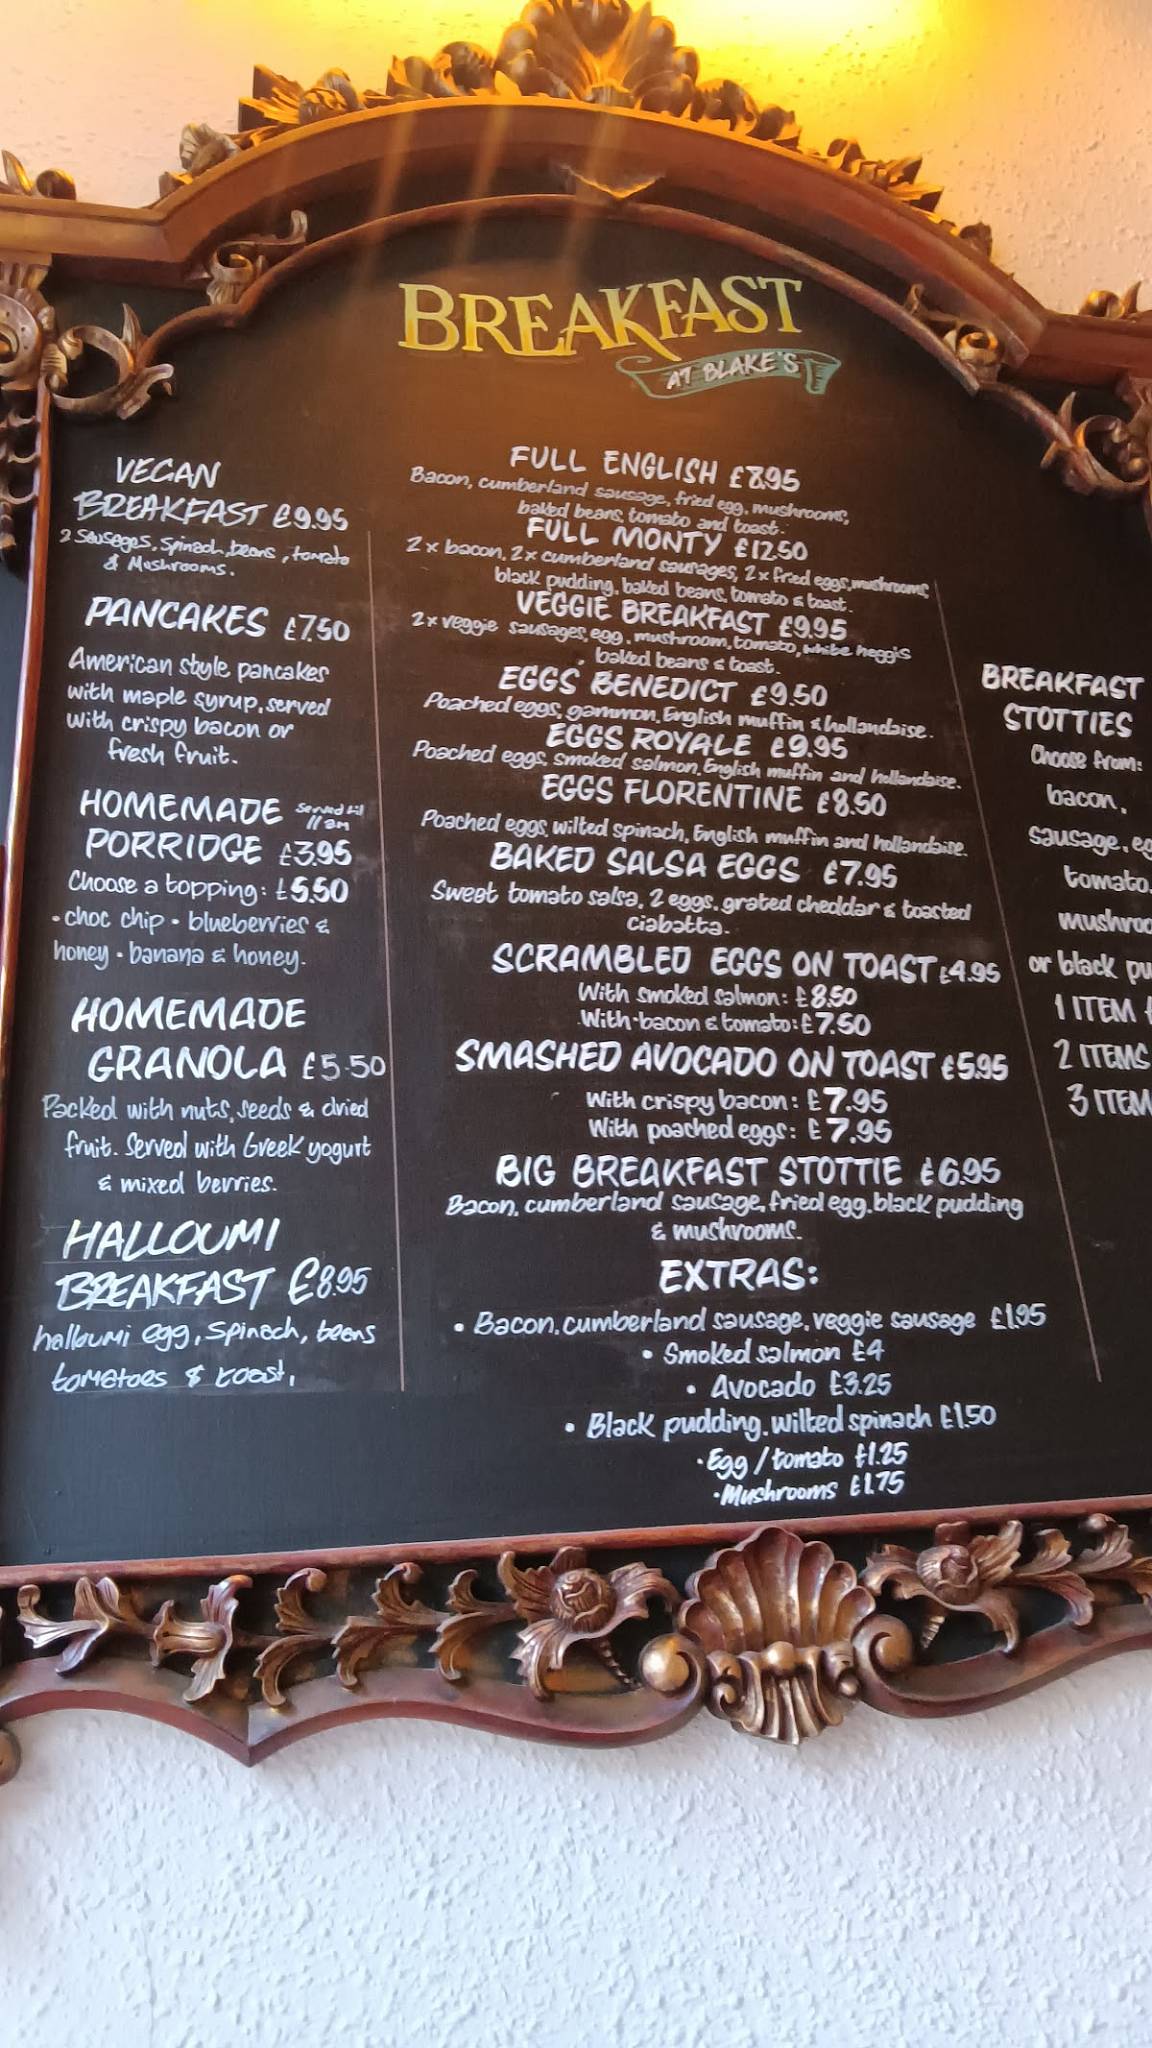 BREAKFAST
AT BLAKE'S
VEGAN
BREAKFAST £9.95
2 Sausages, Spinach, beans, tomato
& Mushrooms.
PANCAKES £7.50
American style pancakes
with maple syrup, served
with crispy bacon or
fresh fruit.
HOMEMADE Served til
11am
PORRIDGE £3.95
Choose a topping: £5.50
• choc chip • blueberries &
honey • banana & honey.
HOMEMADE
GRANOLA £5.50
Packed with nuts, seeds & dried
fruit. Served with Greek yogurt
& mixed berries.
HALLOUMI
BREAKFAST £8.95
halloumi egg, Spinach, beans
tomatoes & toast,
FULL ENGLISH £8.95
Bacon, cumberland sausage, fried egg, mushrooms,
baked beans, tomato and toast.
FULL MONTY £12.50
2 x bacon, 2 x cumberland sausages, 2 x fried eggs, mushrooms
black pudding, baked beans, tomato & toast.
VEGGIE BREAKFAST £9.95
2 x veggie sausages, egg, mushroom, tomato, white heggis
baked beans & toast.
EGGS BENEDICT £9.50
Poached eggs, gammon, English muffin & hollandaise.
EGGS ROYALE £9.95
Poached eggs, smoked salmon, English muffin and hollandaise.
EGGS FLORENTINE £8.50
Poached eggs, wilted spinach, English muffin and hollandaise.
BAKED SALSA EGGS £7.95
Sweet tomato salsa, 2 eggs, grated cheddar & toasted
ciabatta.
SCRAMBLED EGGS ON TOAST £4.95
With smoked salmon: £8.50
With bacon & tomato: £7.50
SMASHED AVOCADO ON TOAST £5.95
With crispy bacon: £7.95
With poached eggs: £7.95
BIG BREAKFAST STOTTIE £6.95
Bacon, cumberland sausage, fried egg, black pudding
& mushrooms.
EXTRAS:
• Bacon, cumberland sausage, veggie sausage £1.95
• Smoked salmon £4
• Avocado £3.25
• Black pudding, wilted spinach £1.50
• Egg / tomato £1.25
• Mushrooms £1.75
BREAKFAST
STOTTIES
Choose from:
bacon,
sausage, eg
tomato,
mushroo
or black pu
1 ITEM
2 ITEMS
3 ITEM